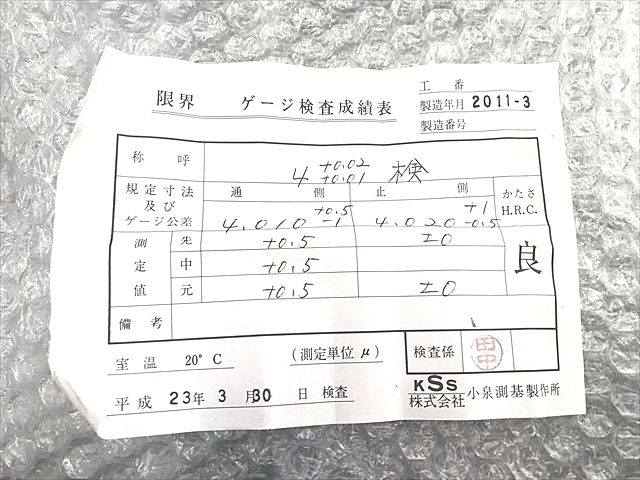 工 番
限界 ゲージ検査成績表
製造年月 2011-3
製造番号
称 呼 4 +0.02 +0.01 検
規定寸法及びゲージ公差 通側 止側 かたさ H.R.C.
4.010 +0.5 -1 4.020 +1 -0.5
測定値 先 +0.5 ±0 良
中 +0.5
元 +0.5 ±0
備 考
室 温 20°C (測定単位 μ) 検査係 田中
平成 23年 3月 30日 検査
KSS
株式会社 小泉測基製作所